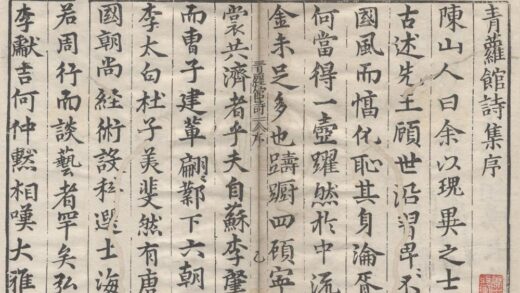 青蘿館詩集序
陳山人曰余以瑰異之士
古述先王顧世沿習卑不
國風而慆化恥其身淪胥
何當得一壺躍然於中流
金未足多也躊躕四顧寧
青蘿館詩 序
乙
裳共濟者乎夫自蘇李肇
而曹子建輩翩〻鄴下六朝
李太白杜子美斐然有唐
國朝尚經術設科選士海
若周行而談藝者罕矣弘
李獻吉何仲默相嘆大雅